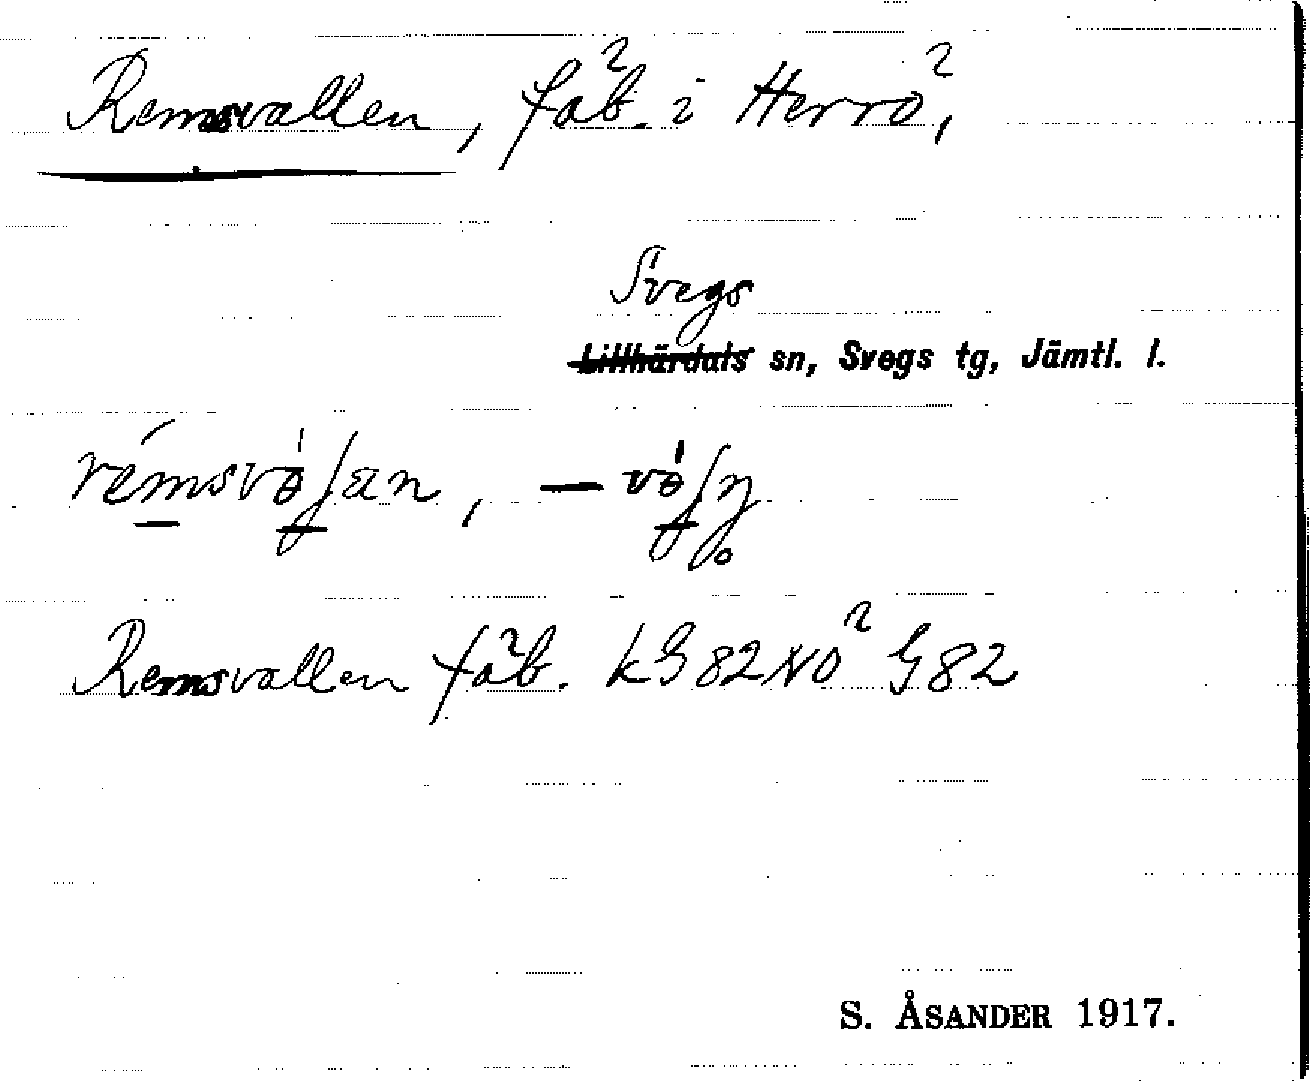 Remsvallen, fäb. i Herrö,
Svegs
Lillhärdals sn, Svegs tg, Jämtl. l.
Remsvallen fäb. kG82NÖ G82
S. ÅSANDER 1917.